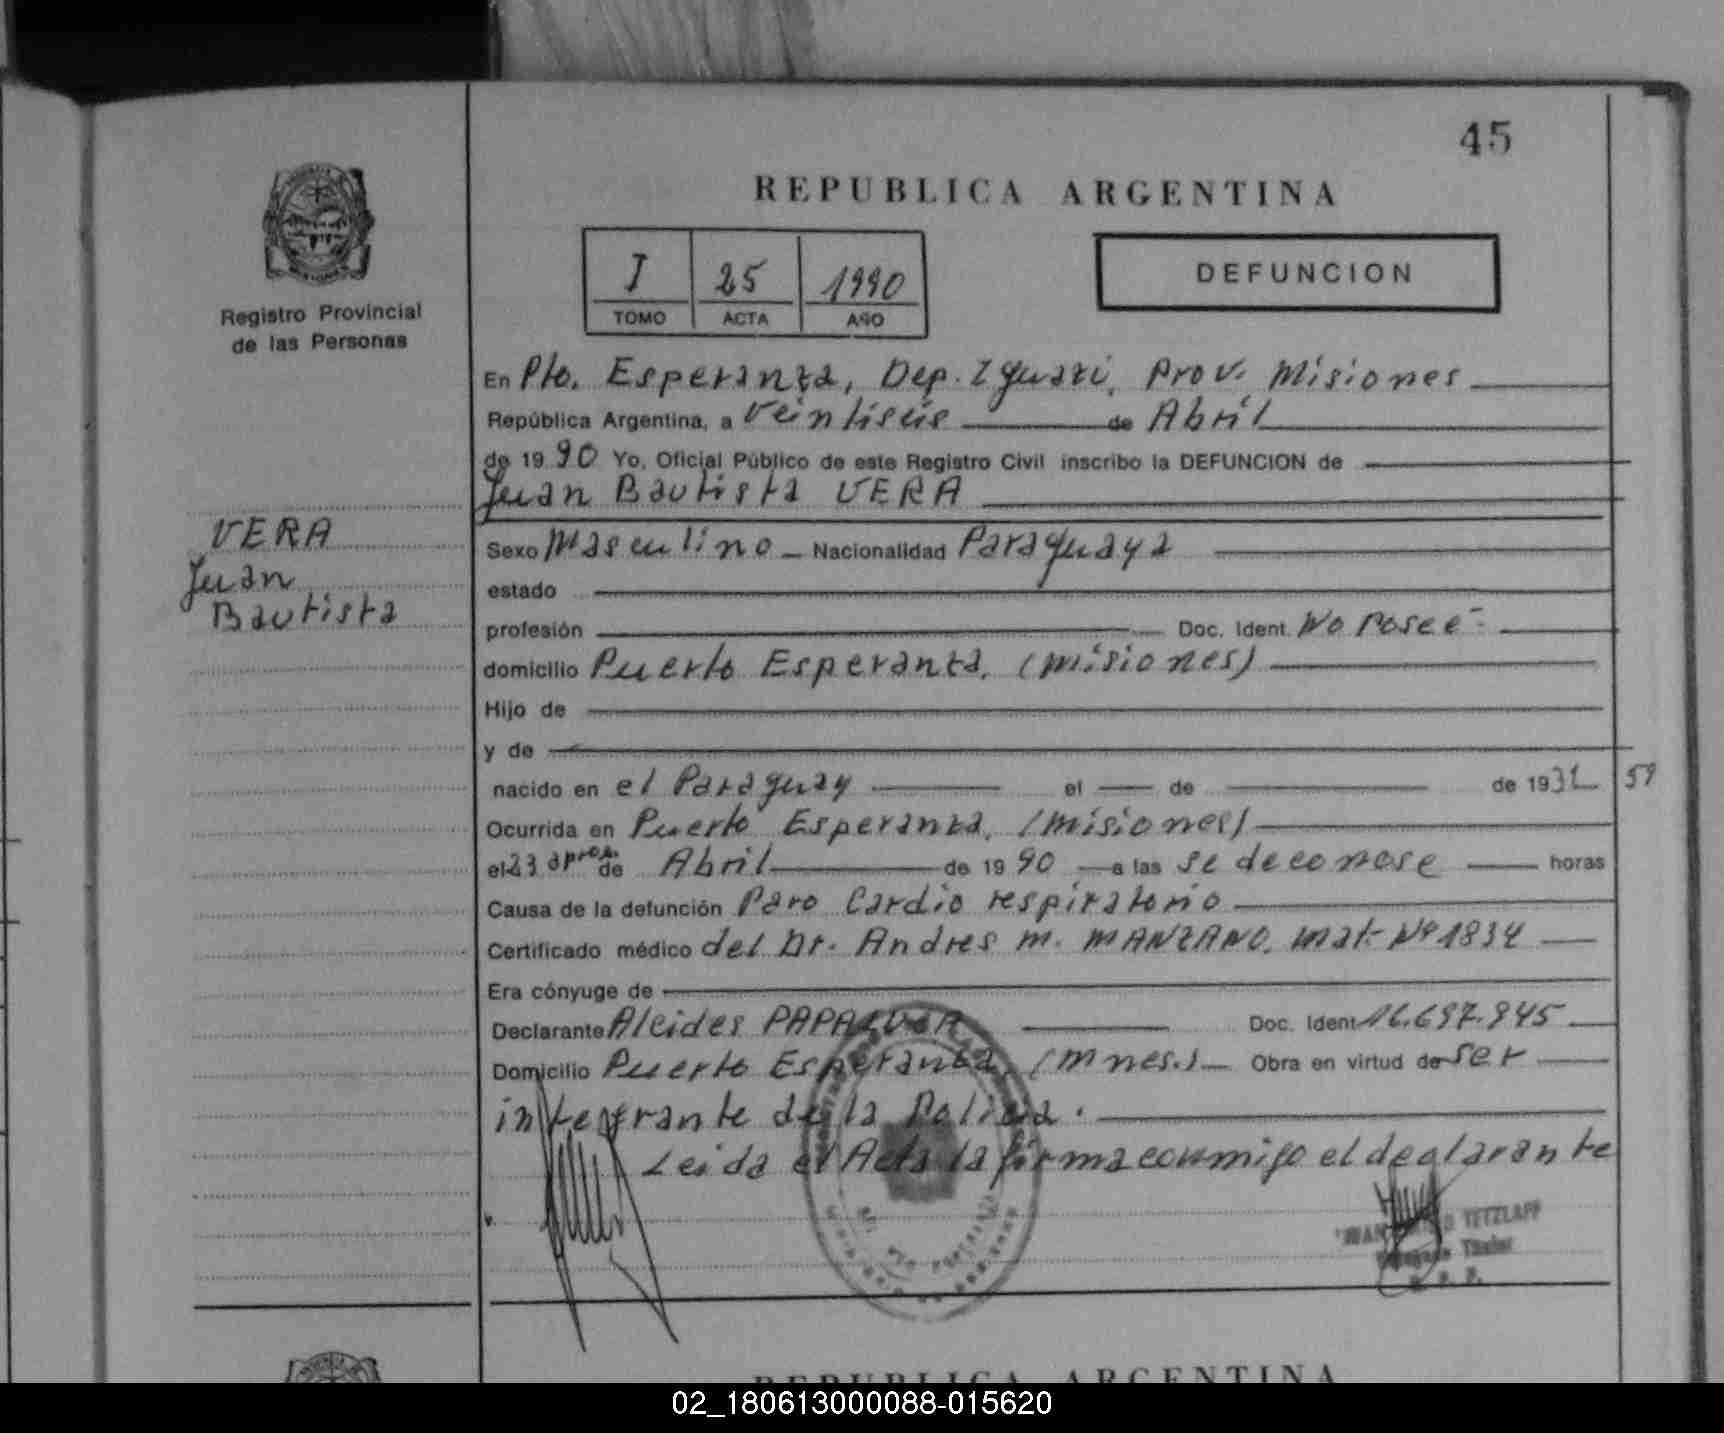 45
REPUBLICA ARGENTINA
I 25 1990
TOMO ACTA AÑO
DEFUNCION
Registro Provincial
de las Personas
En Pto. Esperanza, Dep. Iguazú, Prov. Misiones
República Argentina, a Veintiseis de Abril
de 1990 Yo, Oficial Público de este Registro Civil inscribo la DEFUNCION de
Juan Bautista VERA
VERA
Juan
Bautista
Sexo Masculino Nacionalidad Paraguaya
estado
profesión Doc. Ident. No Posee
domicilio Puerto Esperanza, (Misiones)
Hijo de
y de
nacido en el Paraguay el de de 1931 59
Ocurrida en Puerto Esperanza, (Misiones)
el 23 aprox. de Abril de 1990 a las se deconose horas
Causa de la defunción Paro Cardio respiratorio
Certificado médico del Dr. Andres M. MANZANO, Mat. Nº 1834
Era cónyuge de
Declarante Alcides Doc. Ident. 16.697.945
Domicilio Puerto Esperanza, (Mnes.) Obra en virtud de ser
integrante de la Policia.
Leida el Acta la firma conmigo el declarante
TETZLAFF
Titular
R. P. P.
REPUBLICA ARGENTINA
02_180613000088-015620